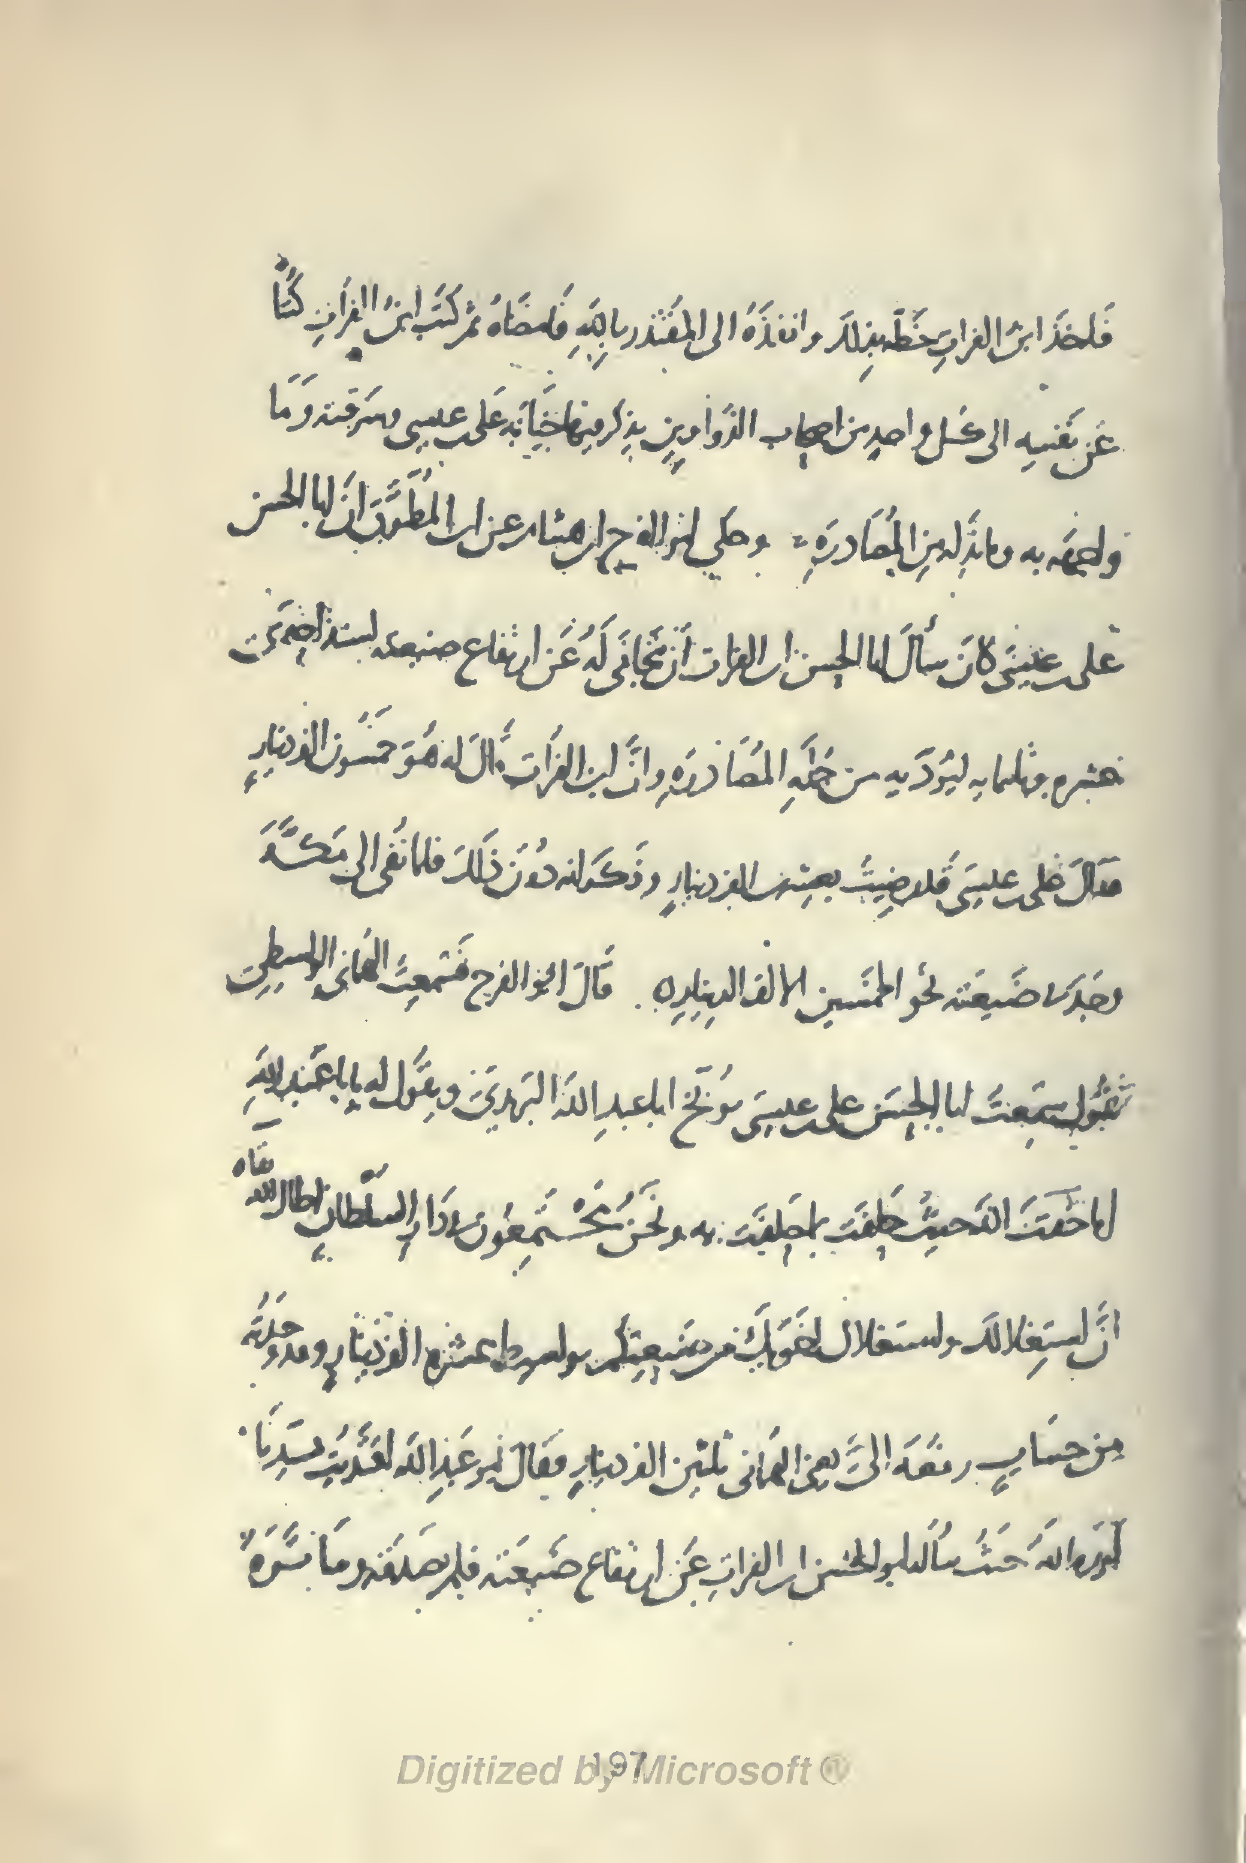 فأخذ ابن الفرات خطّه بذلك وانفذه الى المقتدر بالله فامضاه ثم كتب ابن الفرات كتبًا
عن نفسه الى كل واحد من اصحاب الدواوين يذكر فيها خيانة على بن عيسى وسرقته وما
واجهه به وما بذله من المصادرة وحكى ابو الفرج ابن هشام عن ابن المطوق ان ابا الحسن
على بن عيسى كان سأل ابا الحسن ابن الفرات ان يتجافى له عن ارتفاع ضيعته لسنة احدى
عشره وثلثمايه ليؤديه من جملة المصادرة وانّ ابن الفرات قال له هو خمسون الف دينار
فقال على بن عيسى قد رضيت بعشرين الف دينار وذكر انه دون ذلك فلما نفى الى مكّة
وجدنا ضيعته نحو الخمسين الالف الدينار قال ابو الفرج فسمعت الهمانى الواسطى
يقول سمعت ابا الحسن على بن عيسى يوبّخ ابا عبد الله البريدى ويقول له يابا عبد الله
اما خفت الله حيث حلفت بما حلفت به ونحن مجتمعون فى دار السلطان اطال الله بقاه
انّ استغلالك واستغلال اخوتك من ضيعتكم بواسط عشره الف دينار وقد وجدته
من حساب رفعه الىّ بعض الهمانى ثلثين الف دينار فقال ابو عبد الله اقتديت بسيّدنا
ايّده الله حيث سأله ابو الحسن ابن الفرات عن ارتفاع ضيعته فلم يصدقه وما ستره
197
Digitized by Microsoft ®